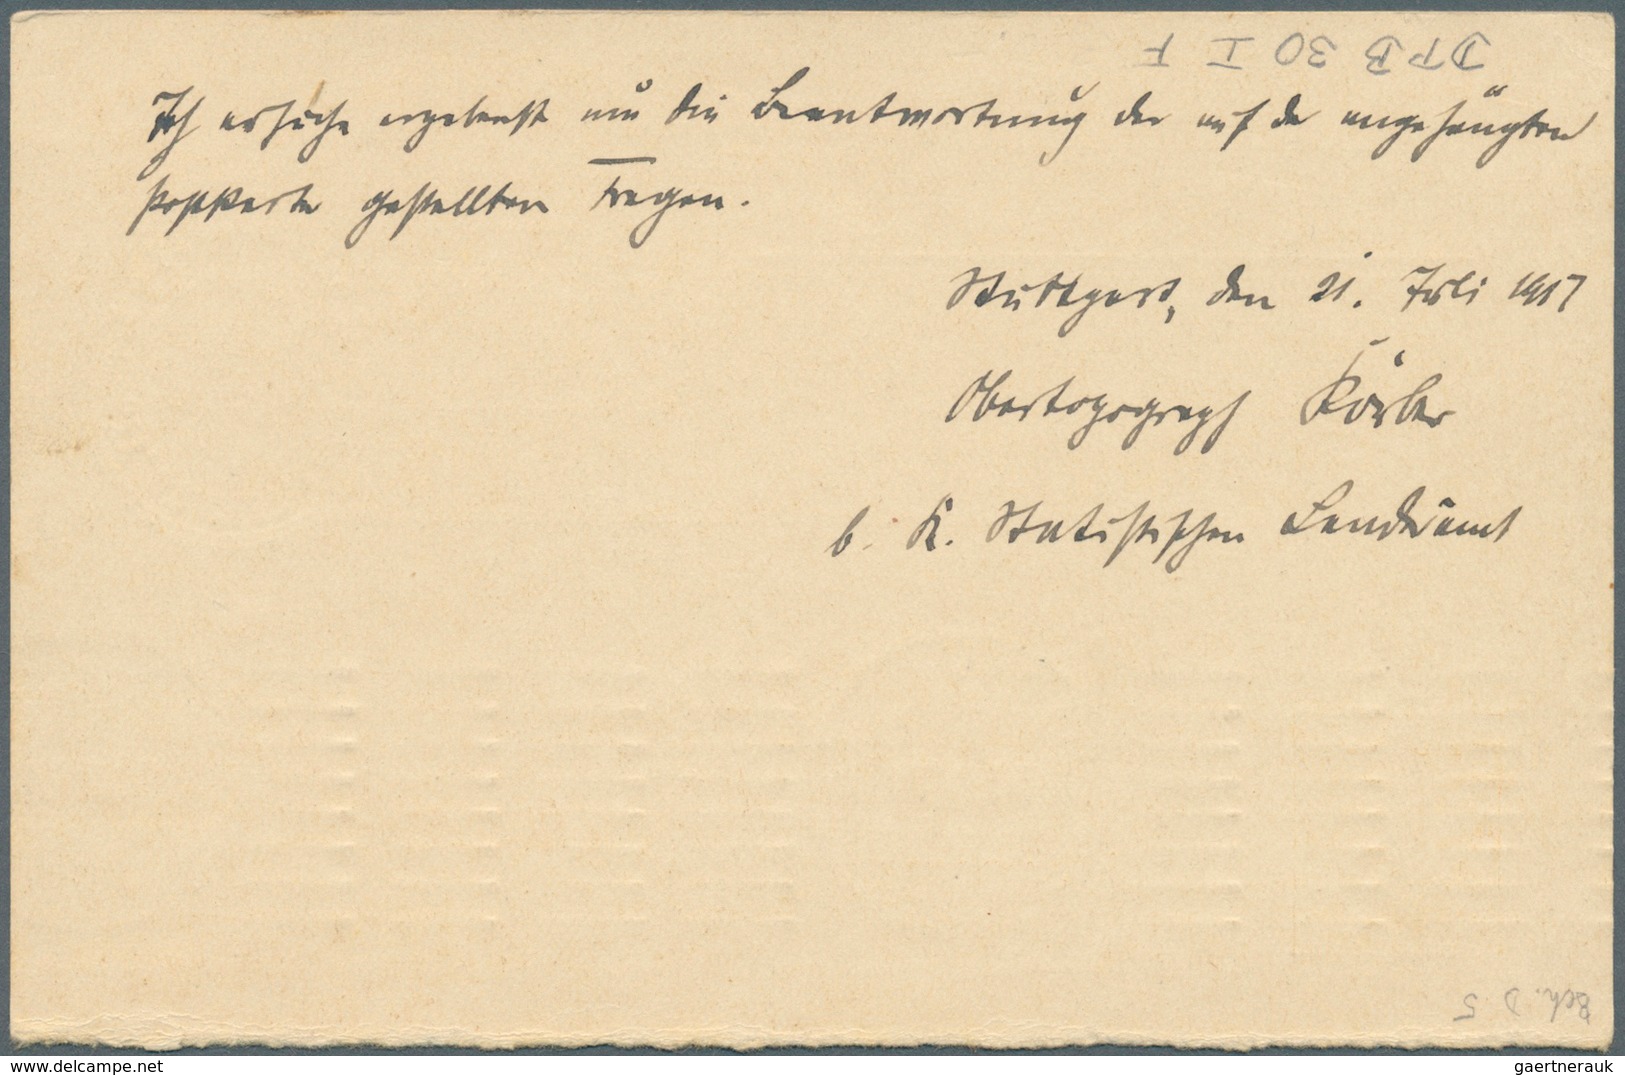 DPB 30 I F
Ich ersuche ergebenst um die Beantwortung der auf der angehängten
Postkarte gestellten Fragen.
Stuttgart, den 21. Juli 1917
Obertopograph
b. K. Statistischen Landesamt
Sch. D 5
delcampe.net
gaertnerauk